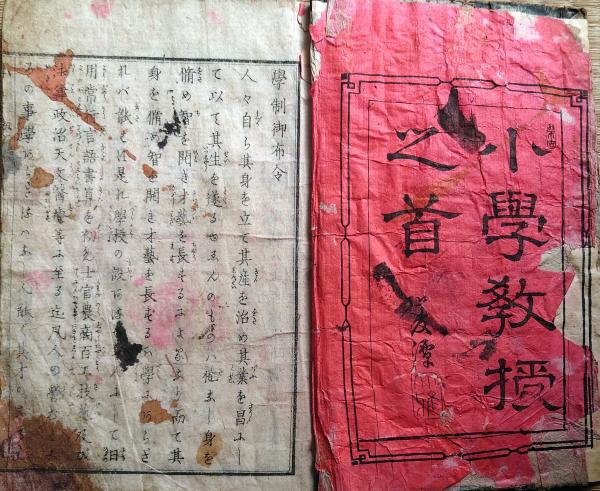 小學教授
之首
學制御布令
人々自ら其身を立て其産を治め其業を昌にし
て以て其生を遂るゆゑんのものハ他なし身を
脩め智を開き才藝を長するによるなり而て其
身を脩め智を開き才藝を長するハ學にあらざ
れバ能はず是れ學校の設
して日
用常行言語書算を初め士官農商百工技藝及び
法律政治天文醫療等に至る迄凡人の營